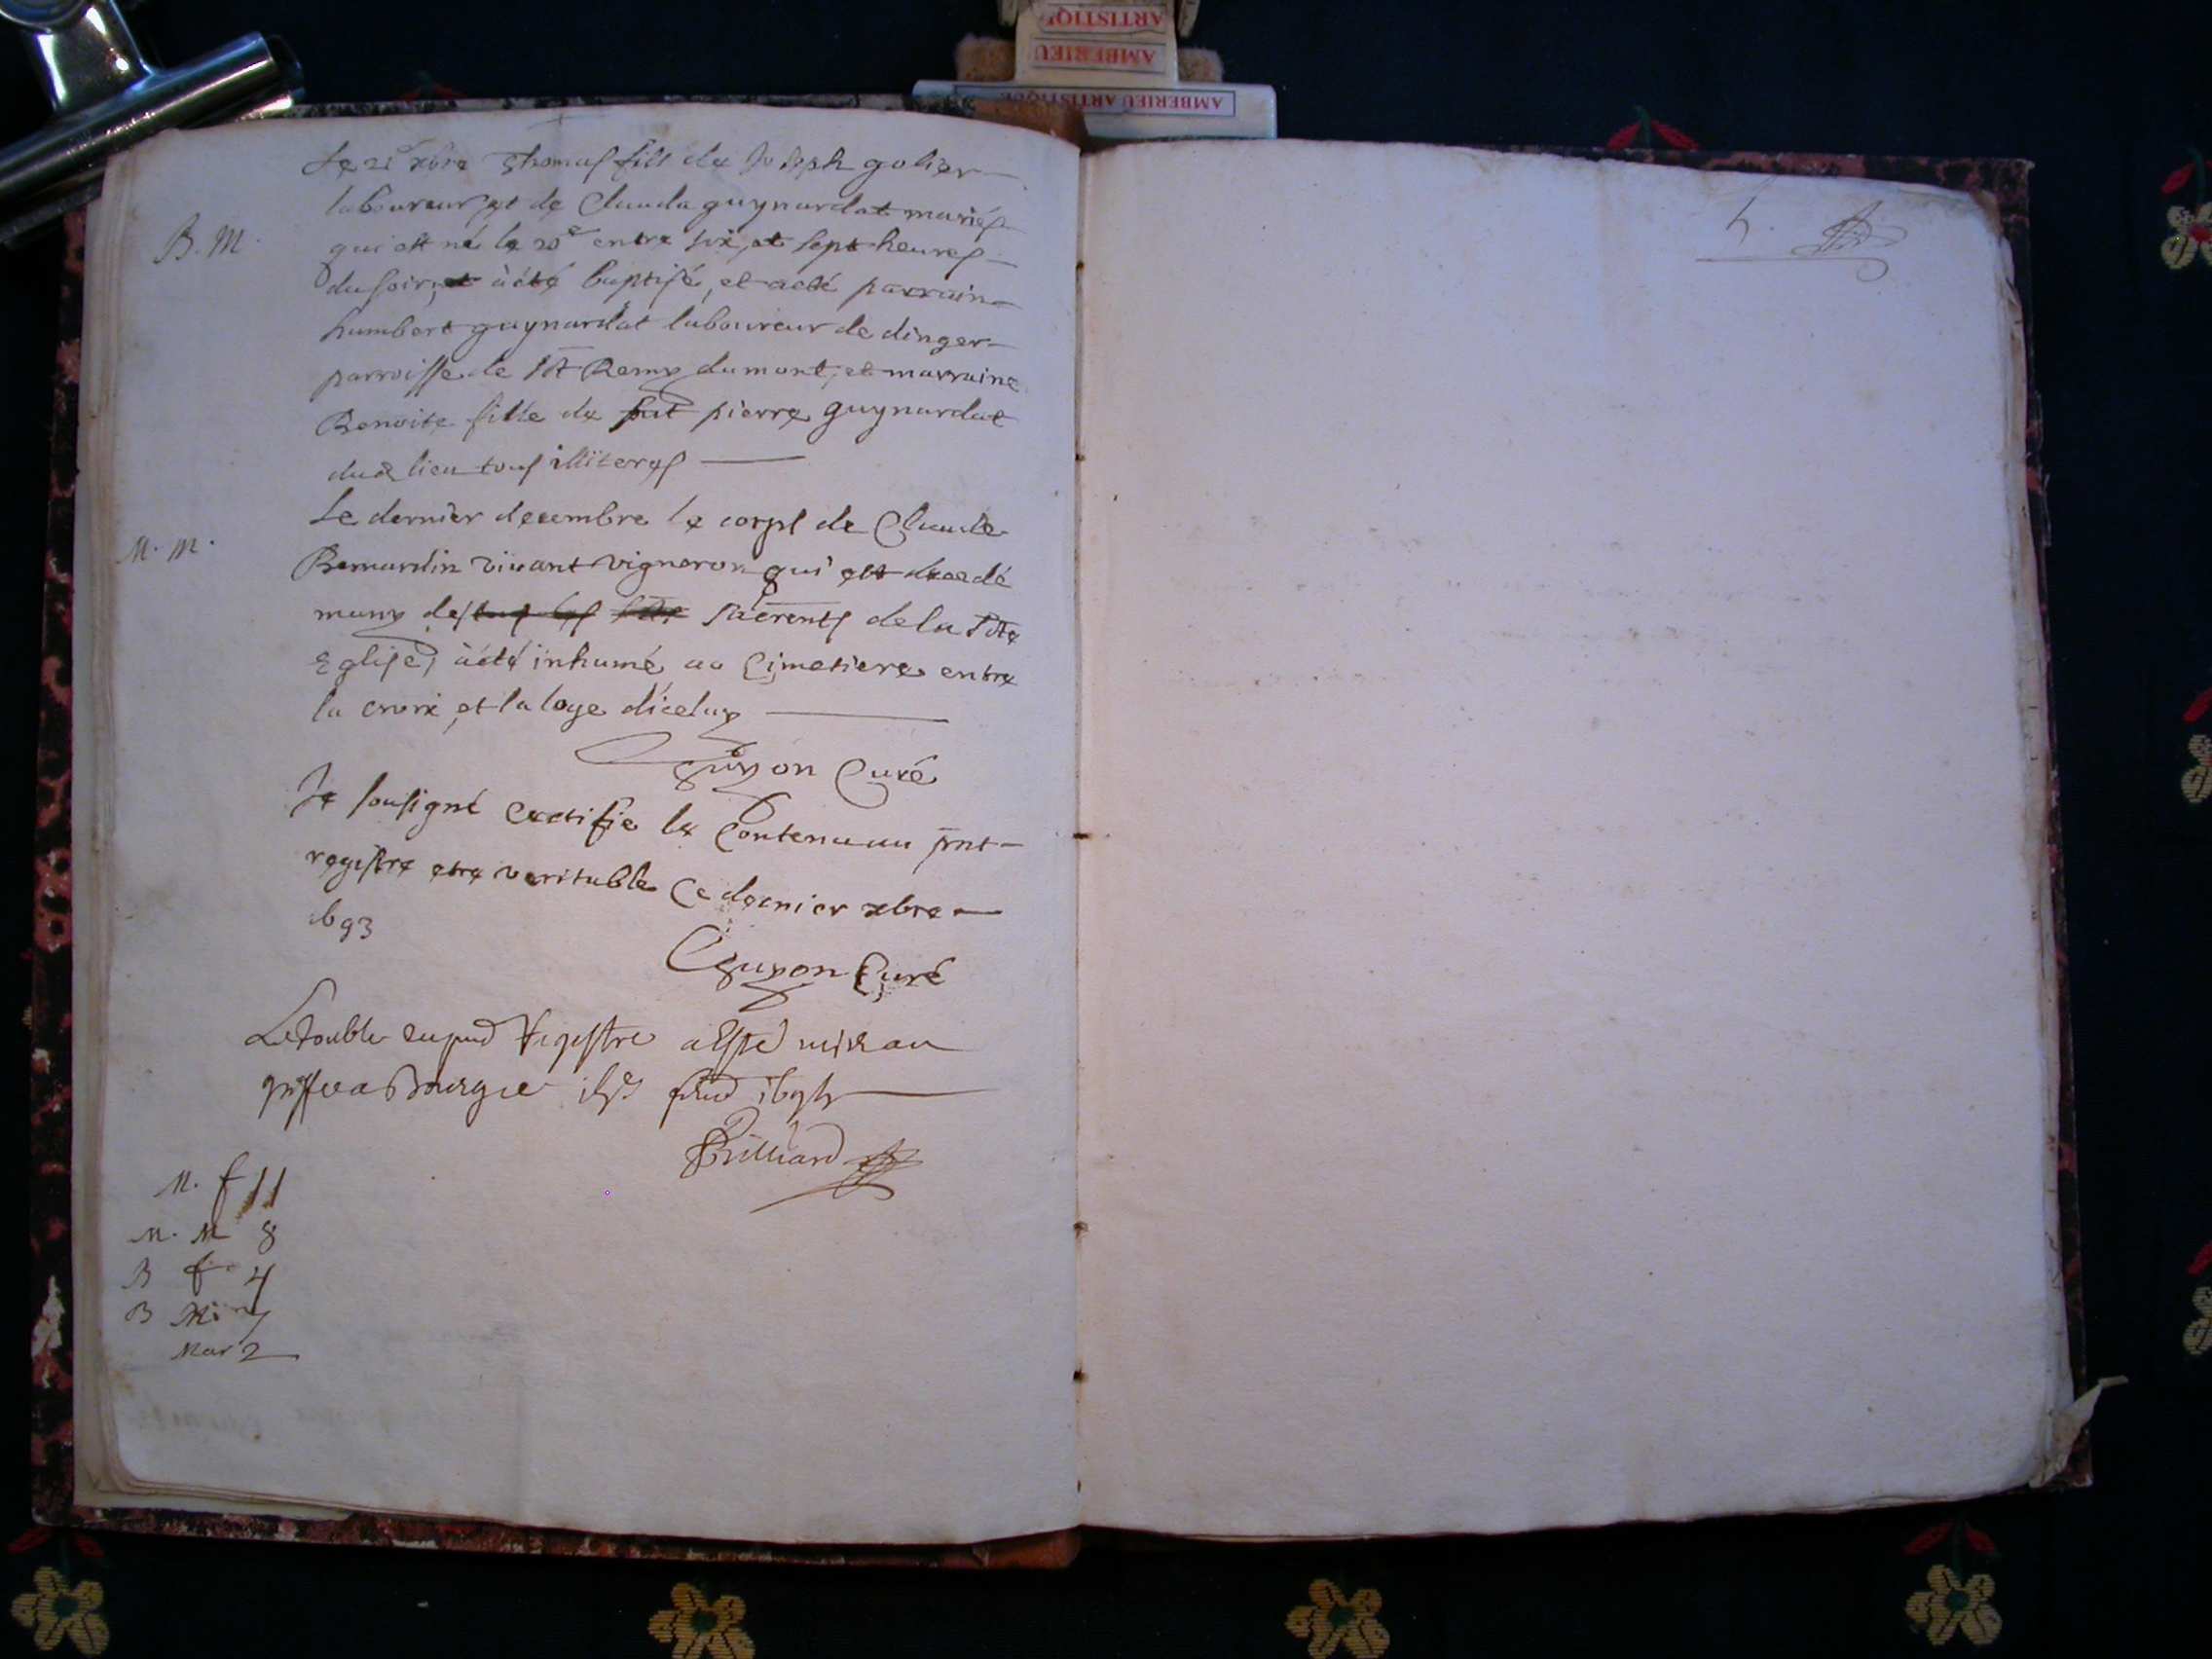 ARTISTIQ
AMBERIEU
AMBERIEU ARTISTIQUE
Le 21e xbre Thomas fils de Joseph golier
laboureur et de Clauda guynardat mariés
B. M. qui est né le 20e entre six, et sept heures
du soir, et à été baptisé, et a été parrain
humbert guynardat laboureur de dinger
parroisse de St Remy dumont, et marraine
Benoite fille de fut pierre guynardat
dud lieu tous illiteres
Le dernier decembre le corps de Claude
M. M. Bernardin vivant vigneron qui est decedé
muny des sacrents de la Ste
Eglise, à été inhumé au Cimetiere entre
la croix, et la loge d'iceluy
Guyon Curé
Je sousigné Certifie le Contenu au pnt
registre etre veritable Ce dernier xbre
1693
Guyon Curé
Le double du pnt Registre a esté mis au
greffe a Bourg ce
Brilliard
M. f 11
M. M 8
B f 4
B M 7
Mar 2
h.